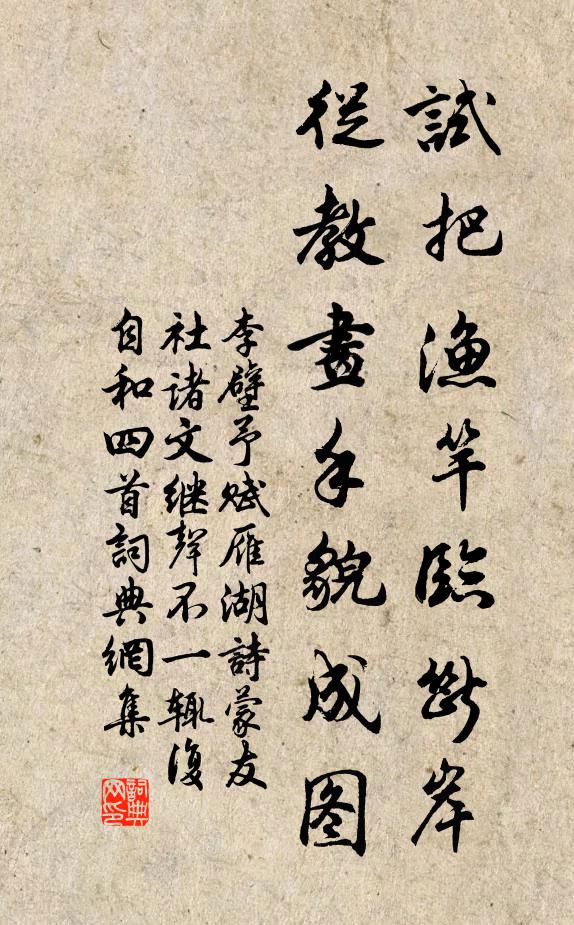 試把漁竿臨斷岸
從教畫手貌成图
李壁予赋雁湖詩蒙友
社诸文继聲不一輒復
自和四首詞典網集
詞典网印